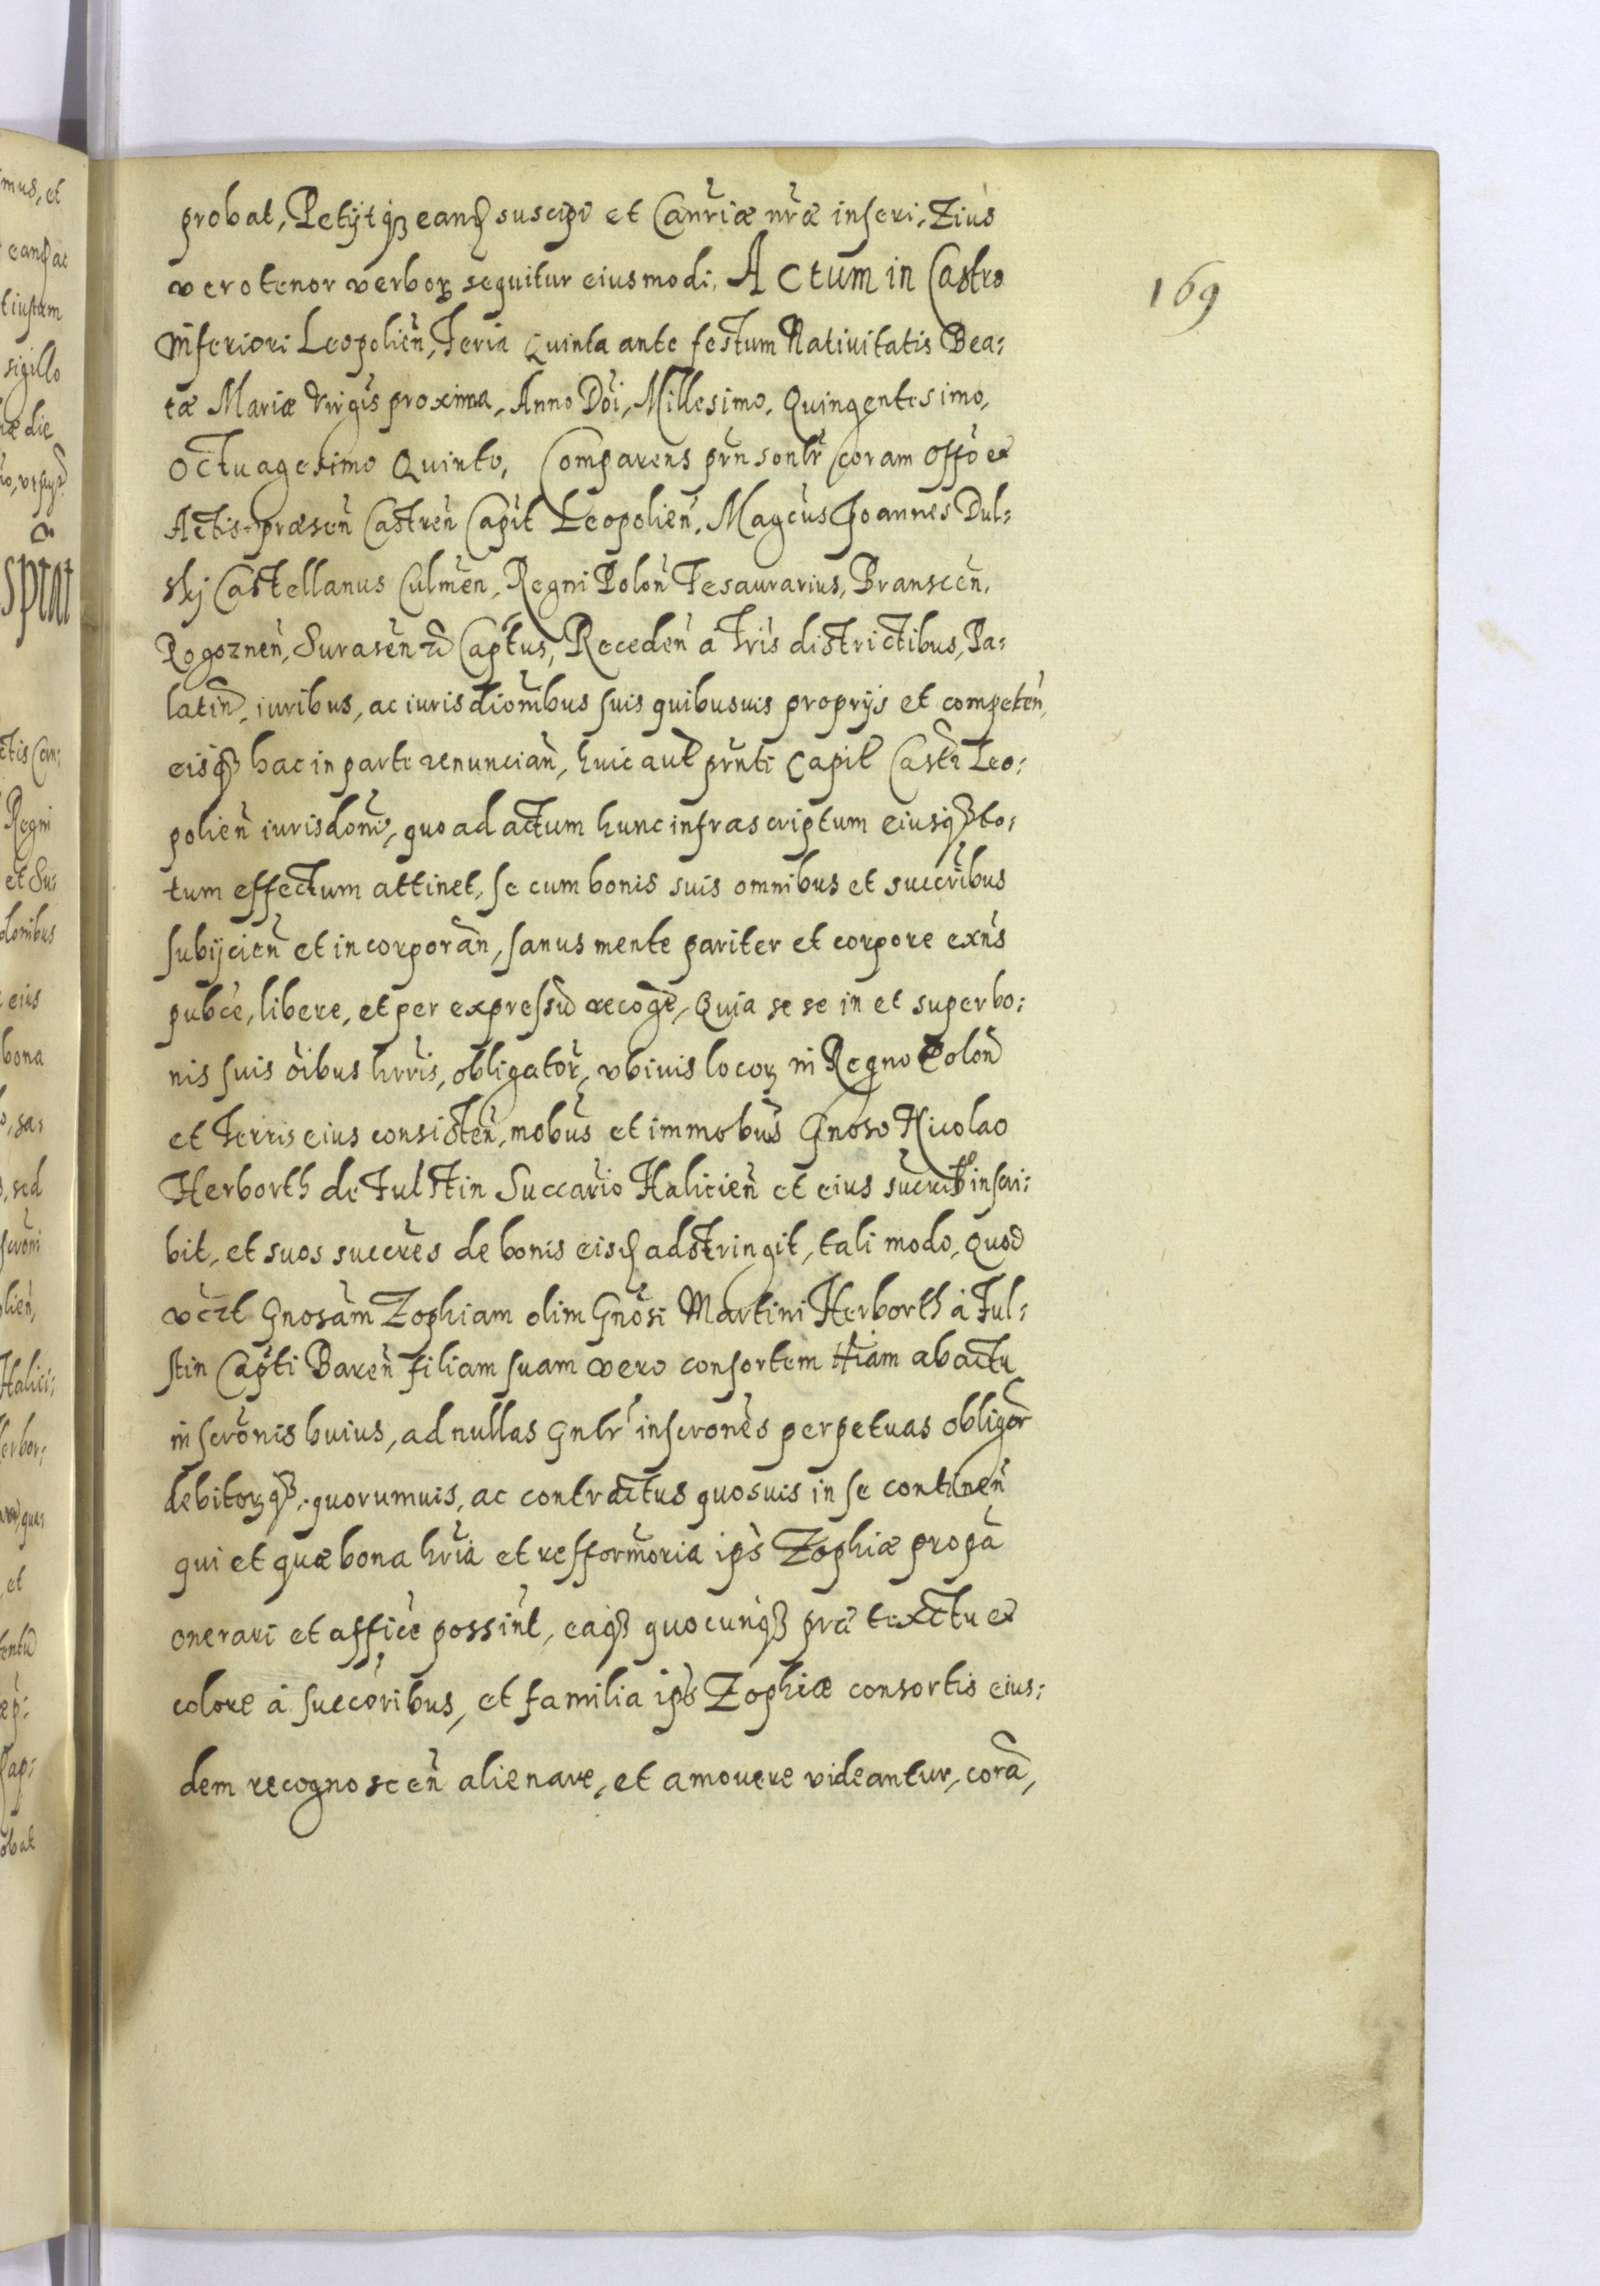 probat, Petijtqȝ eand suscipi et Canr̃iæ nr̃æ inseri, Eius
vero tenor verbor sequitur eiusmodi. Actum in Castro
169
inferiori Leopolien̄, Feria Quinta ante festum Natiuitatis Bea=
tæ Mariæ Virgis̄ proxima, Anno Dōi, Millesimo, Quingentesimo,
Octuagesimo Quinto, Comparens pr̄nsonlr̄ coram Offō et
Actis præsen̄ Castren̄ Capit̄ Leopolien̄, Magcūs Joannes Dul=
skj Castellanus Culmen̄, Regni Polon̄ Tesaurarius, Branscen̄,
Rogoznen̄, Surasen̄ Captūs, Receden̄ a Tris̄ districtibus, Pa=
latin̄, iuribus, ac iurisdiōnibus suis quibusuis proprijs et competen̄,
eisqȝ hac in parte renuncian̄, huic aut̄ pr̄nti Capit̄ Castr̄ Leo=
polien̄ iurisdon̄i, quo ad actum hunc infrascriptum eiusqȝ to=
tum effectum attinet, se cum bonis suis omnibus et succr̄ibus
subijcien̄ et incorporan̄, sanus mente pariter et corpore exn̄s
pubcē, libere, et per expressū recogn̄, Quia se se in et super bo=
nis suis ōibus hr̄ris, obligator̄, vbiuis locor in Regno Polon̄
et Terris eius consisten̄, mobūs et immobūs Gnoso Nicolao
Herborth de Fulstin Succario Halicien̄ et eius succrib inscri=
bit, et suos succr̄es de bonis eisd adstringit, tali modo, Quod
vc̄zt Gnosam Zophiam olim Gnosi Martini Herborth à Ful=
stin Capti Baren̄ filiam suam vero consortem ttiam ab actu
inscrōnis huius, ad nullas Gnlr̄ inscrōnes perpetuas obligor̄
debitorqȝ quorumuis, ac contractus quosuis in se continen̄
qui et quæ bona hr̄ia et refformōria ips̄ Zophiæ propā
onerari et afficē possint, eaqȝ quocunqȝ prætextu et
colore à succoribus, et familia ips̄ Zophiæ consortis eius=
dem recognoscen̄ alienare, et amouere videantur, corā,